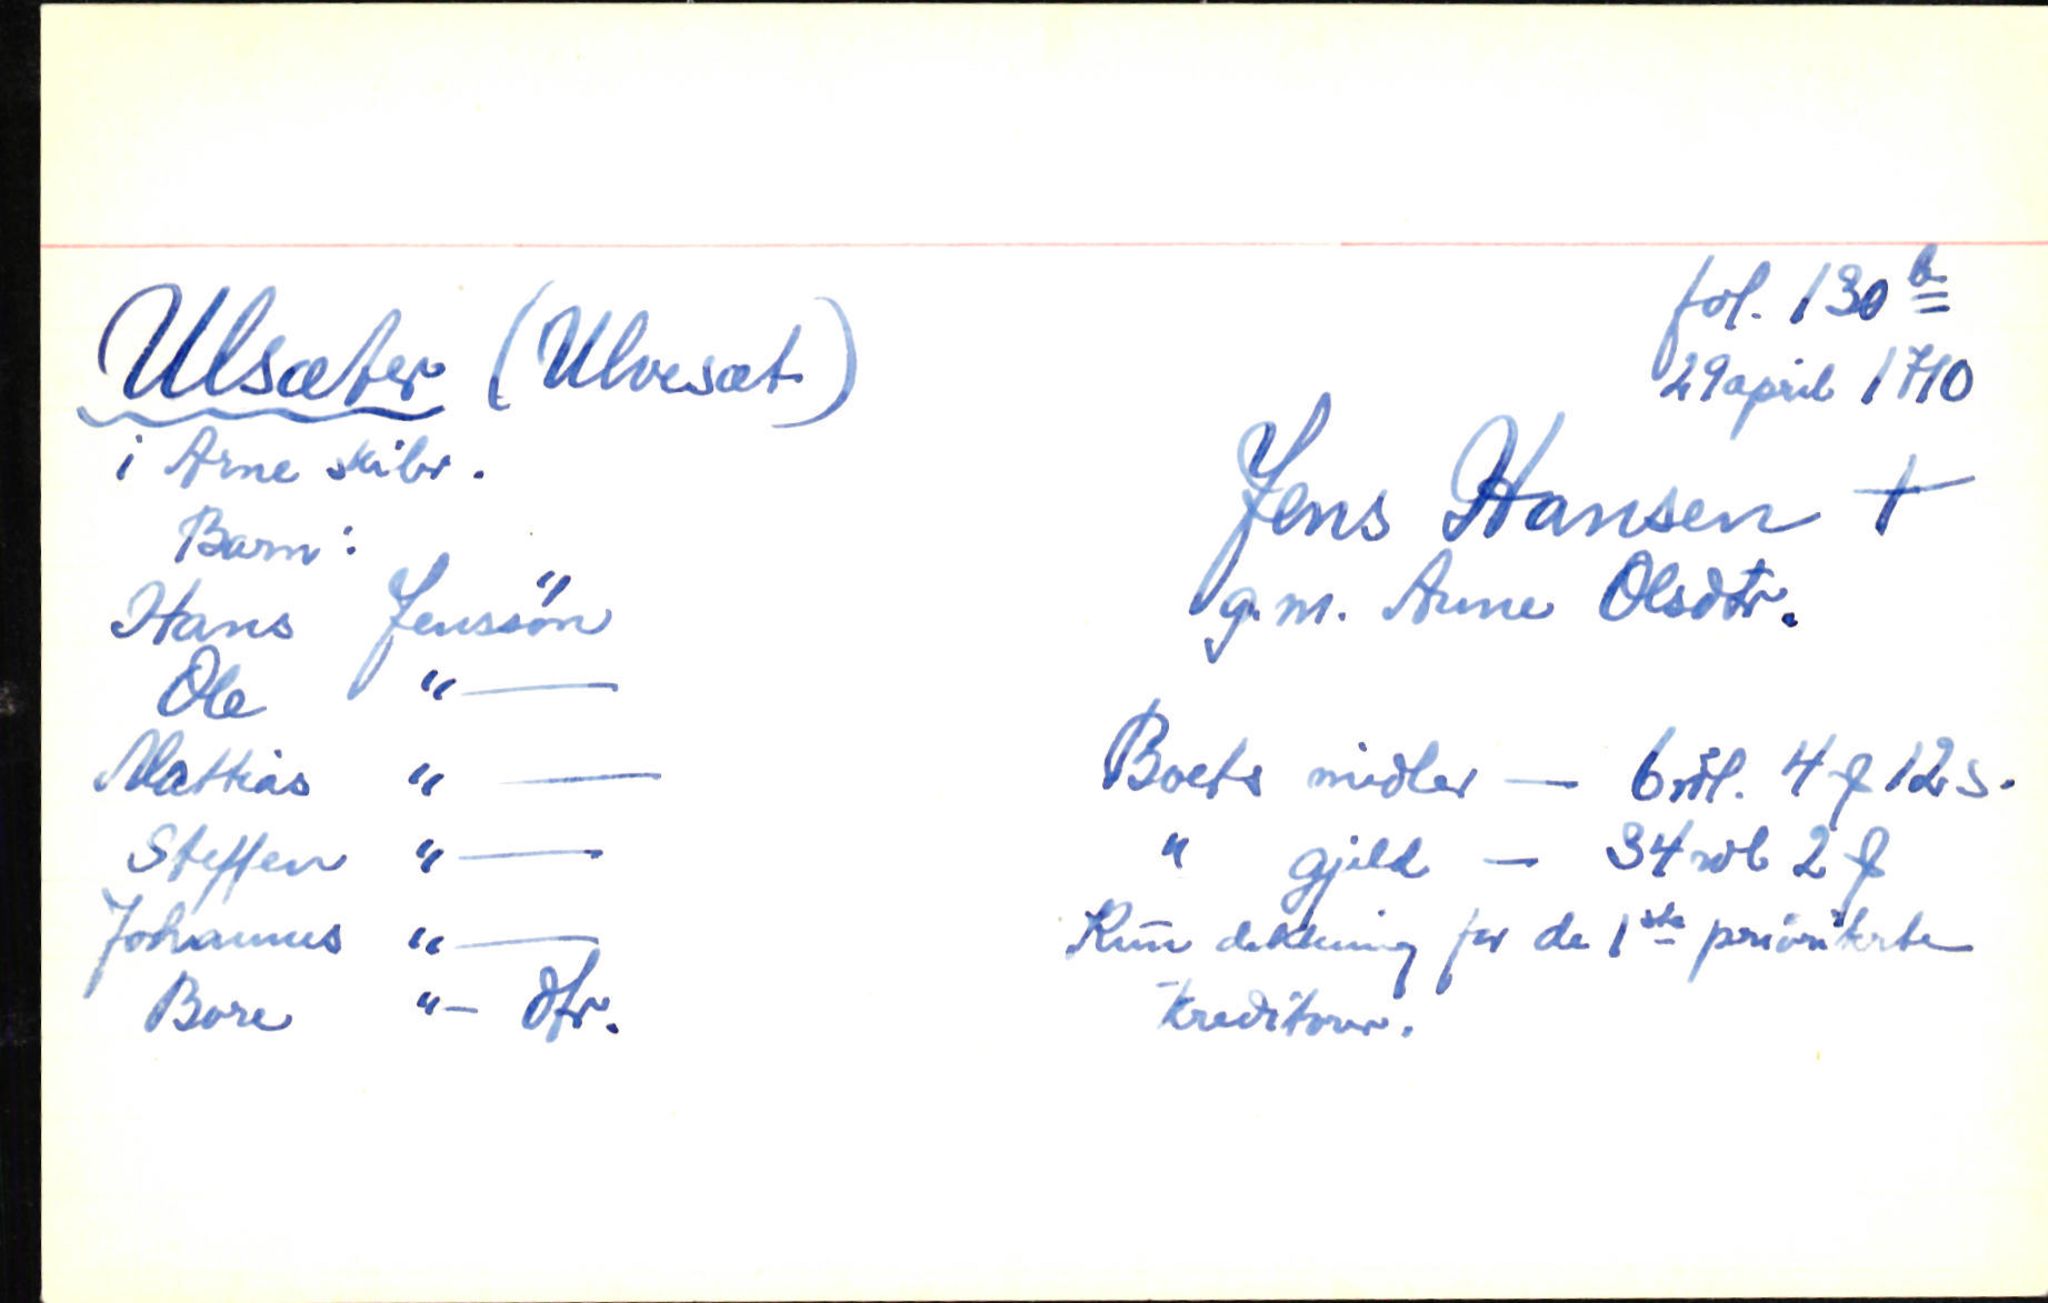 Ulsæter (Ulvesæt)
i Arne skibr.
Barn:
Hans Jenssøn
Ole "—
Mattias "—
Steffen "—
Johannes "—
Bore "— dtr.
fol. 130 b
29 april 1710
Jens Hansen +
g. m. Anne Olsdtr.
Boets midler — 6 rdl. 4 ƒ 12 s.
" gjeld — 34 rdl 2 ƒ
Kun dekning for de 1ste prioriterte
kreditorer.